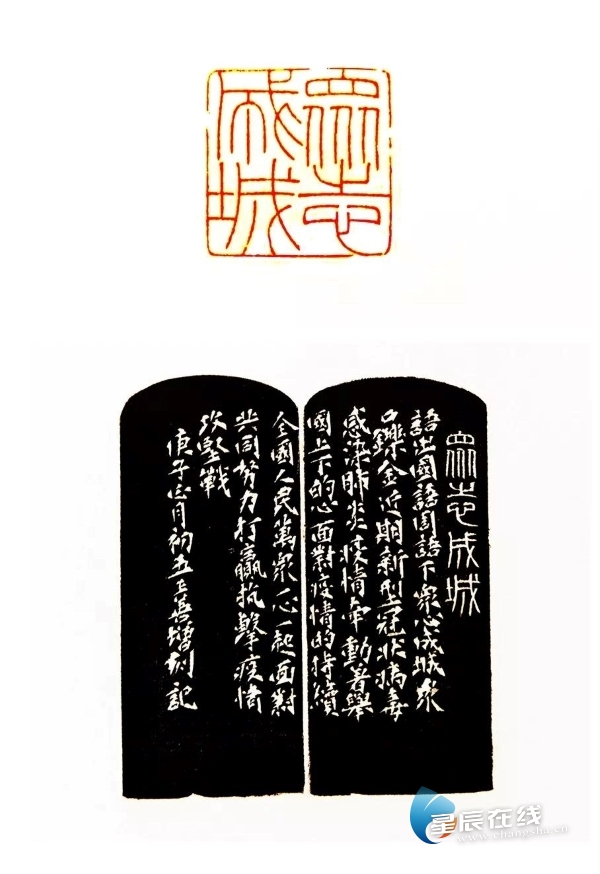 眾志成城
眾志成城
語出國語周語下眾心成城眾
口鑠金近期新型冠狀病毒
感染肺炎疫情牽動着舉
國上下的心面對疫情的持續
全國人民萬眾一心一起面對
共同努力打贏抗擊疫情
攻堅戰
庚子正月初五
刻記
星辰在线
www.changsha.cn